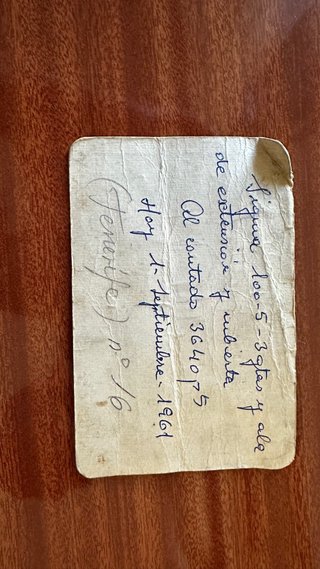 Sigma 100-5-3 gtas y ala
de extension y cubierta
Al contado 3640,75
Hoy 1- Septiembre - 1961
(Tenerife) nº 16